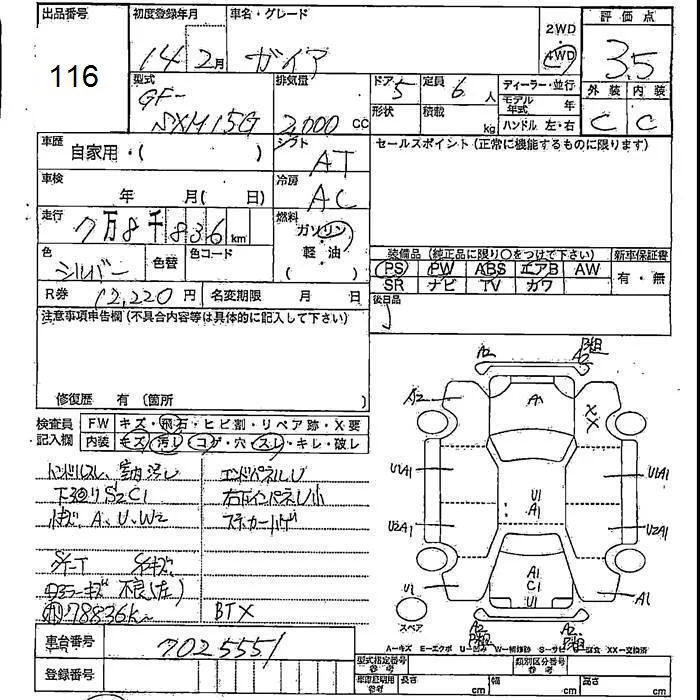 出品番号 初度登録年月 車名・グレード 評価点
116 14 2月 ガイア 2WD 4WD 3.5
型式 排気量 ドア 5 定員 6人 ディーラー・並行 外装 内装
GF- 形状 積載 kg モデル年式 年 C C
SXM15G 2,000 CC ハンドル 左・右
車歴 自家用・( ) シフト AT セールスポイント (正常に機能するものに限ります)
車検 年 月( 日) 冷房 AC
走行 7万8千836km 燃料 ガソリン・軽油 ( )
色 シルバー 色替 色コード 装備品 (純正品に限り○をつけて下さい) 新車保証書
PS PW ABS エアB AW 有・無
SR ナビ TV カワ
R券 12,220円 名変期限 月 日 後日品
注意事項申告欄 (不具合内容等は具体的に記入して下さい)
修復歴 有 (箇所 )
検査員記入欄 FW キズ・飛石・ヒビ割・リペア跡・X要
内装 キズ・汚レ・コゲ・穴・スレ・キレ・破レ
ハンドルスレ、室内汚レ エンドパネルU
下廻りS2C1 右下インパネU小
小キズ、A、U、W2 ステッカーハゲ
シート
不良(左)
78836km BTX
車台番号 7025551
登録番号
A2 A2
A2 A1 XX
U1A1 U1A1
U1
A1
U2A1 U2A1
A1
C1
U1 U1 A1
スペア A2 A2
A=キズ E=エクボ U=凹み W=補修跡 S=サビ C=腐食 XX=交換済
型式指定番号 参考 類別区分番号 参考
車庫証明用 参考 長さ cm 幅 cm 高さ cm